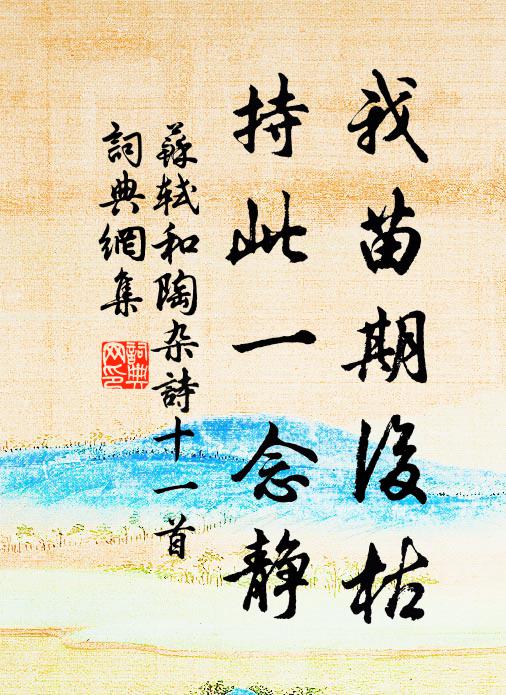 我苗期後枯
持此一念静
蘇軾和陶杂詩十一首
詞典網集
詞典网印